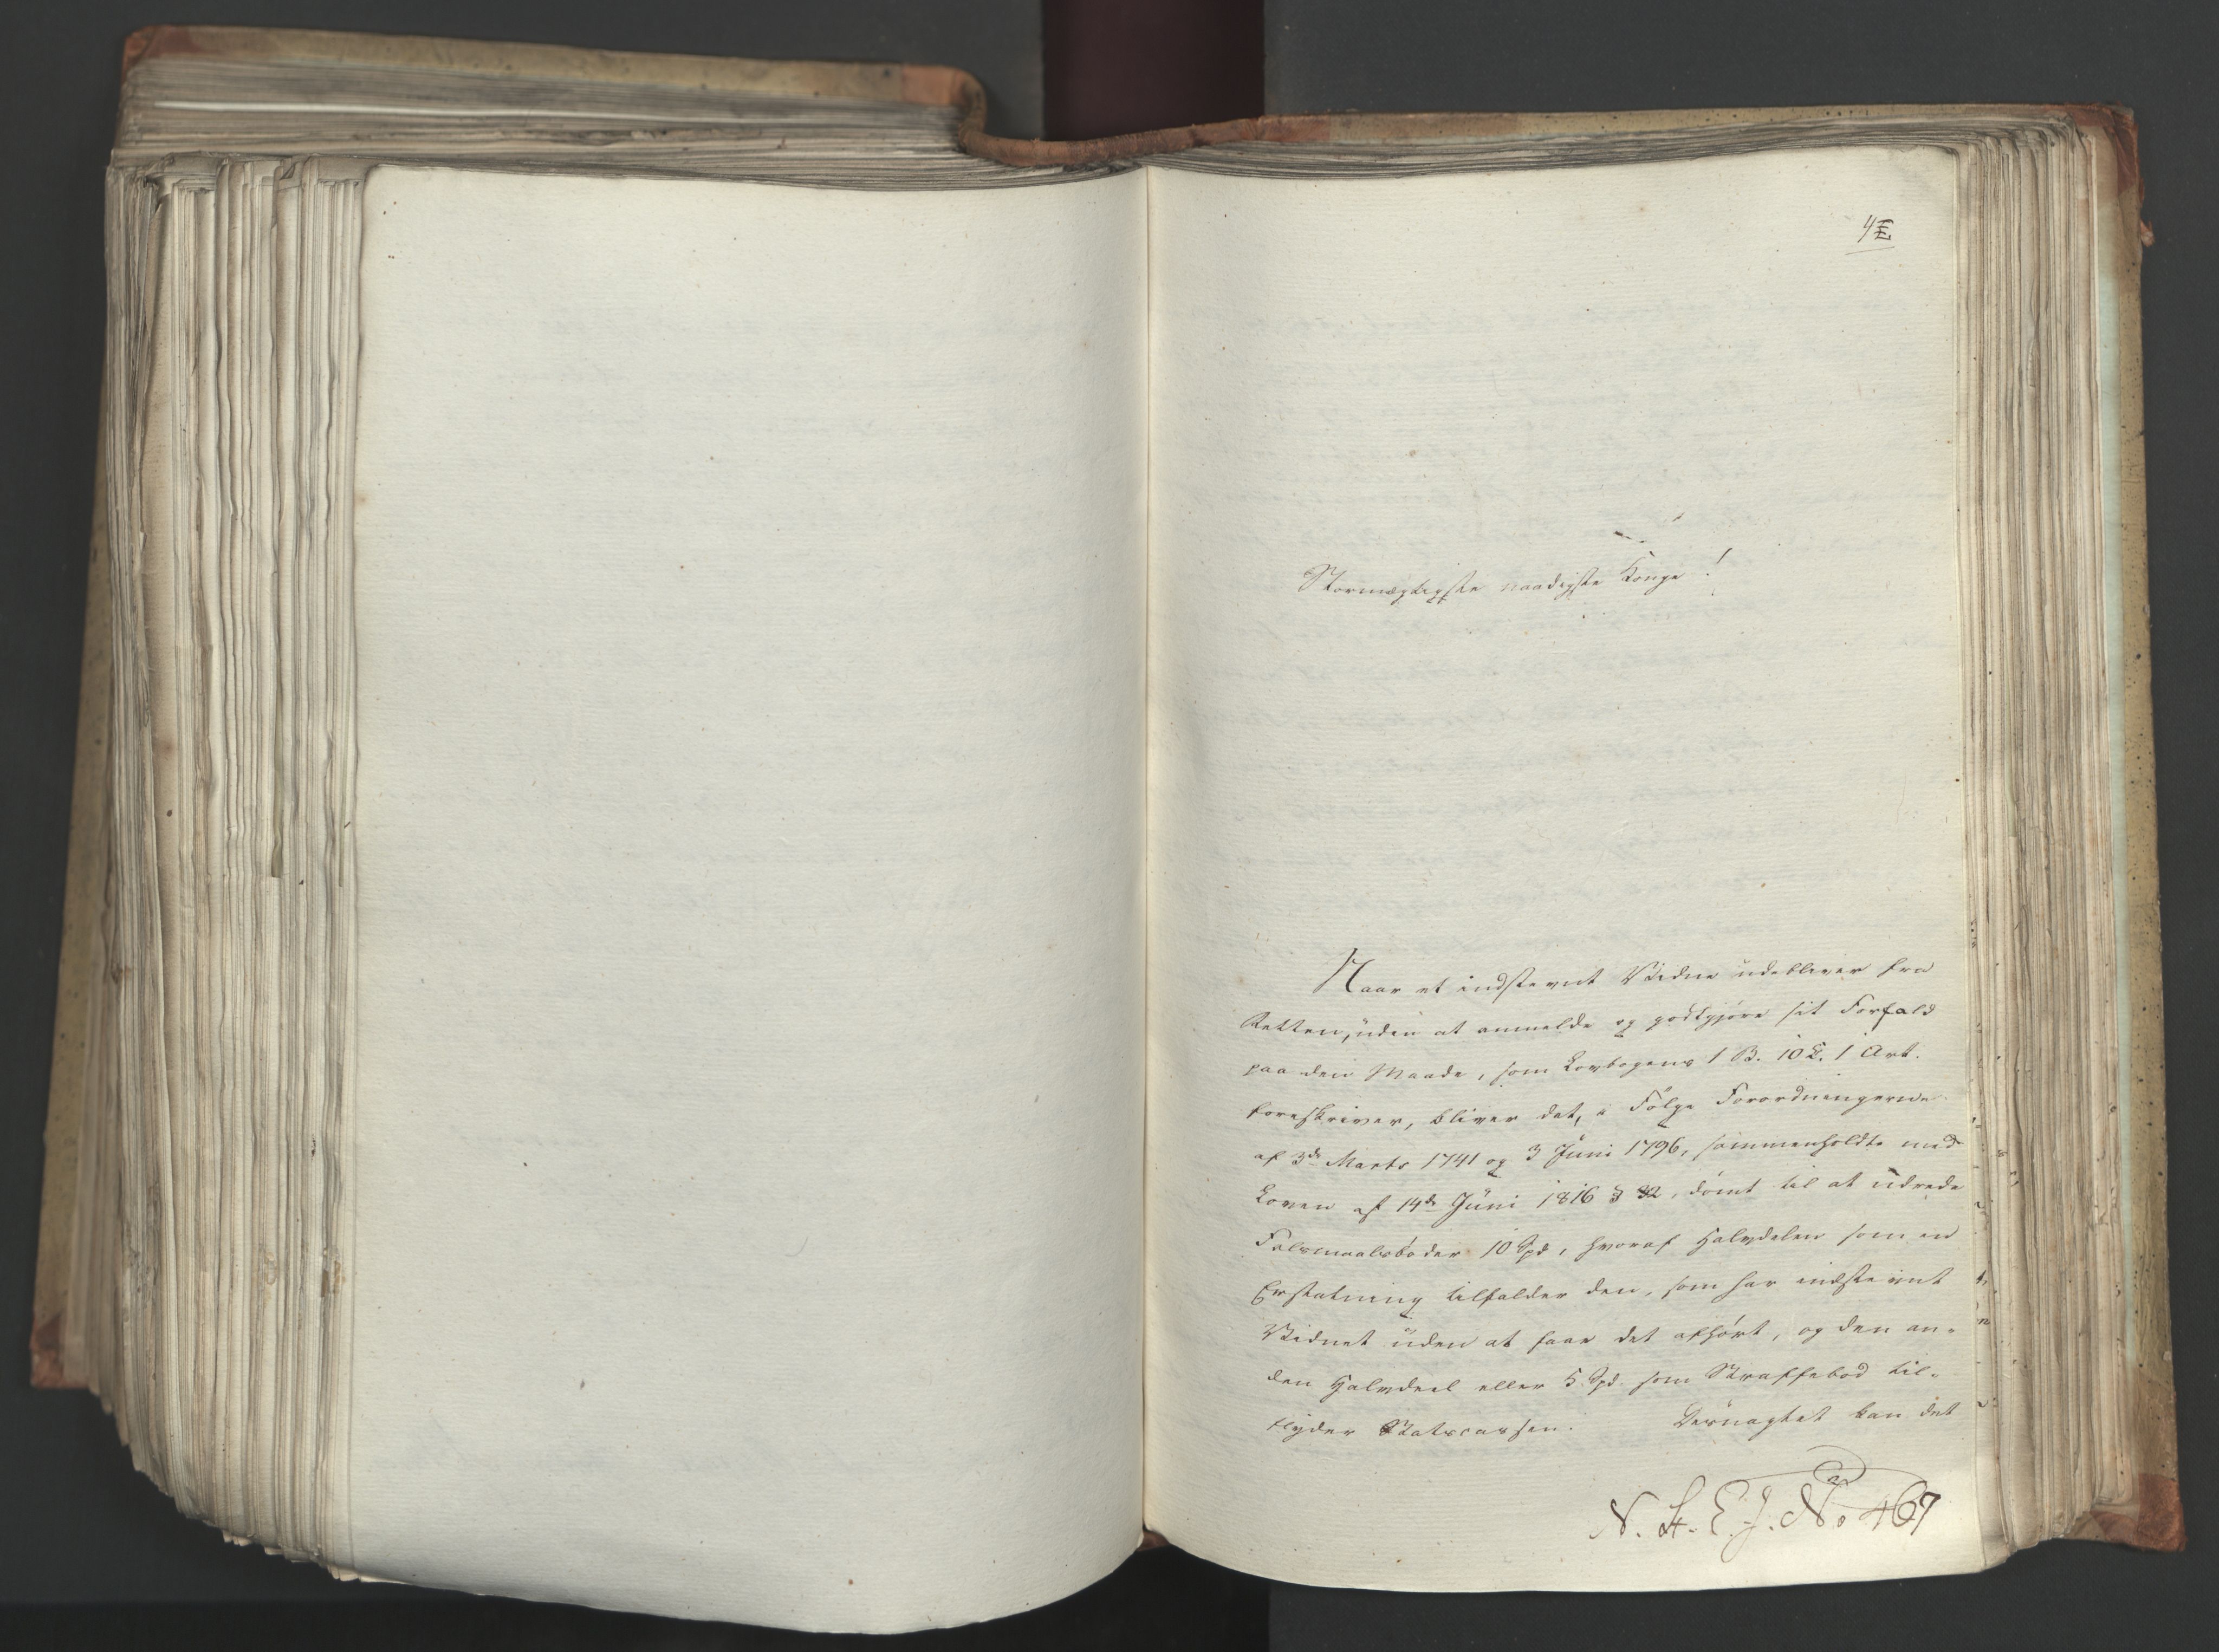 Stormægtigste naadigste Konge!
Naar et indstevnt Vidne udebliver fra
Retten, uden at anmelde og godtgjøre sit Forfald
paa den Maade, som Lovbogens 1 B. 10 C. 1 Art.
foreskriver, bliver det, i Følge Forordningerne
af 3de Marts 1741 og 3 Juni 1796, sammenholdte med
Loven af 14de Juni 1816 § 32, dømt til at udrede
Falsmaalsbøder 10 Spd, hvoraf Halvdelen som en
Erstatning tilfalder den, som har indstevnt
Vidnet uden at faae det afhørt, og den an-
den Halvdeel eller 5 Spd. som Straffebod til-
flyder Statscassen. Desuagtet kan det
N. St. E. J. No 467